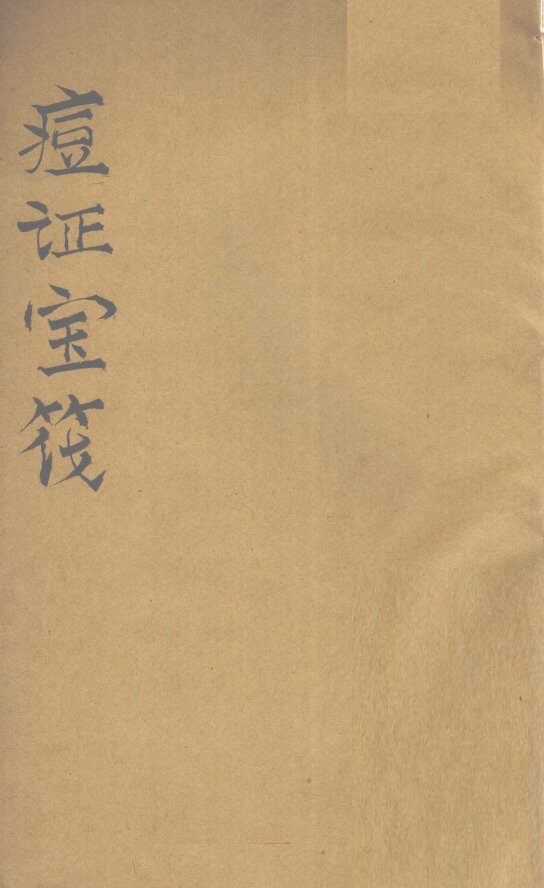 痘证宝筏